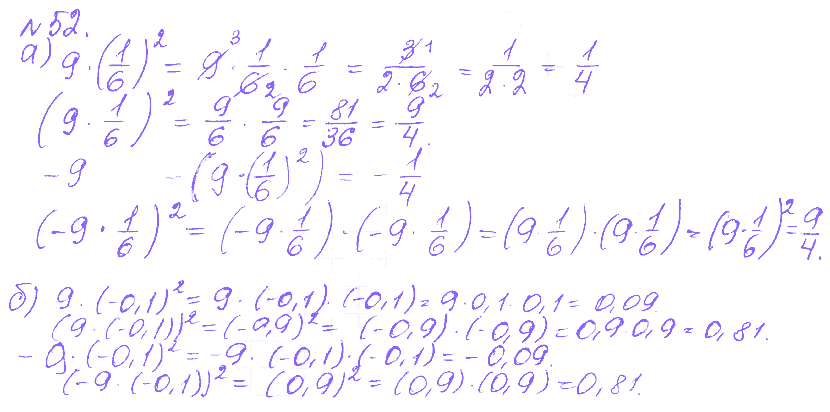 №52.
а) 9·(1/6)² = 9³·1/6₂·1/6 = 3¹/2·6₂ = 1/2·2 = 1/4
(9·1/6)² = 9/6·9/6 = 81/36 = 9/4.
-9 -(9·(1/6)²) = -1/4
(-9·1/6)² = (-9·1/6)·(-9·1/6) = (9·1/6)·(9·1/6) = (9·1/6)² = 9/4.
б) 9·(-0,1)² = 9·(-0,1)·(-0,1) = 9·0,1·0,1 = 0,09.
(9·(-0,1))² = (-0,9)² = (-0,9)·(-0,9) = 0,9·0,9 = 0,81.
-9·(-0,1)² = -9·(-0,1)·(-0,1) = -0,09.
(-9·(-0,1))² = (0,9)² = (0,9)·(0,9) = 0,81.